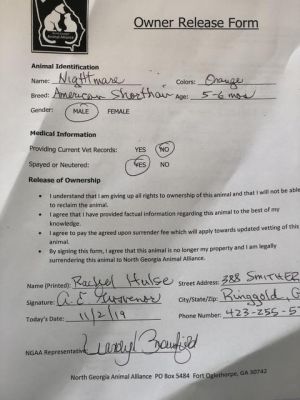 Animal Alliance
Owner Release Form
Animal Identification
Name: Nightmare Colors: Orange
Breed: American Shorthair Age: 5-6 mos
Gender: MALE FEMALE
Medical Information
Providing Current Vet Records: YES NO
Spayed or Neutered: YES NO
Release of Ownership
• I understand that I am giving up all rights to ownership of this animal and that I will not be able
to reclaim the animal.
• I agree that I have provided factual information regarding this animal to the best of my
knowledge.
• I agree to pay the agreed upon surrender fee which will apply towards updated vetting of this
animal.
• By signing this form, I agree that this animal is no longer my property and I am legally
surrendering this animal to North Georgia Animal Alliance.
Name (Printed): Rachel Hulse Street Address: 388
Signature: City/State/Zip: Ringgold, G
Today's Date: 11/2/19 Phone Number: 423-255-5
NGAA Representative
North Georgia Animal Alliance PO Box 5484 Fort Oglethorpe, GA 30742